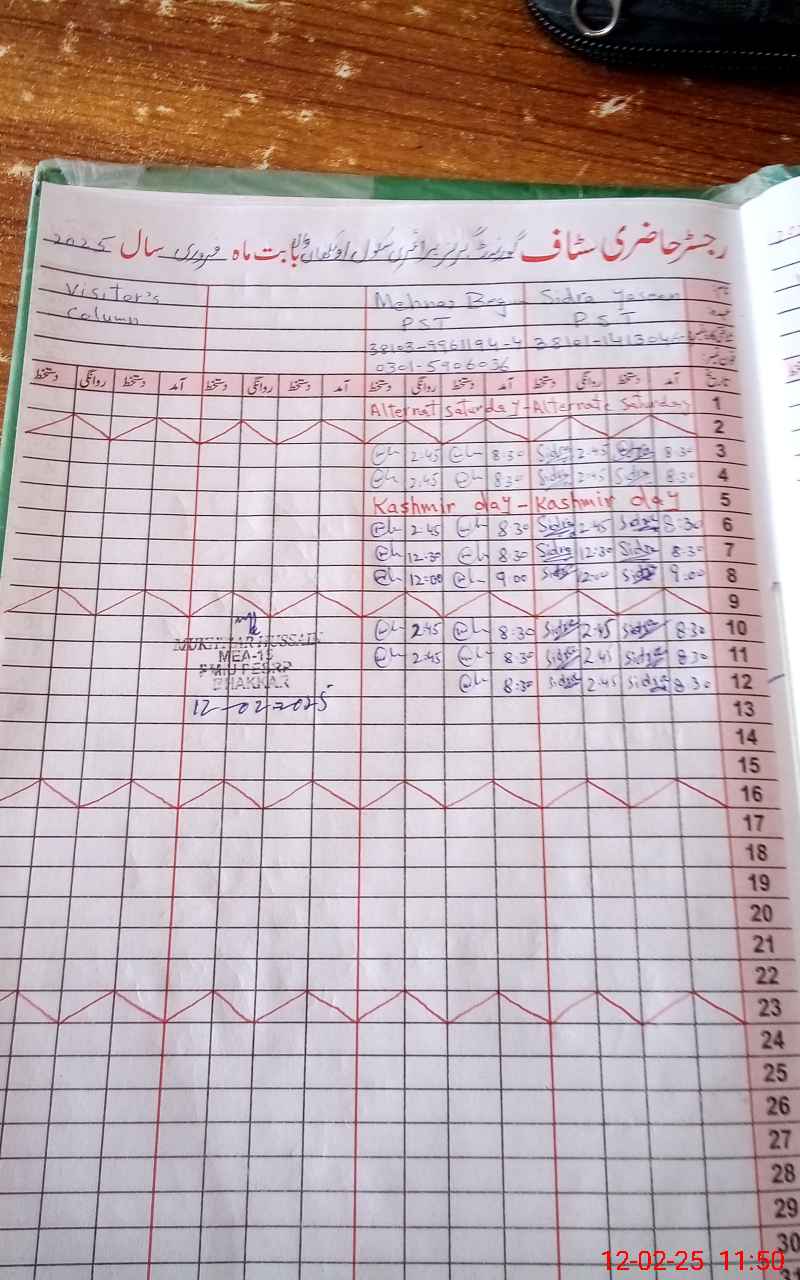 رجسٹر حاضری سٹاف گورنمنٹ گرلز پرائمری سکول بابت ماہ فروری سال 2025
Visitor's Column
Mehnaz Beg Sidra
PST PST
38103-9961194-4
0301-5906036
تاریخ آمد دستخط روانگی دستخط آمد دستخط روانگی دستخط آمد دستخط روانگی دستخط آمد دستخط روانگی دستخط
Alternat Saturday - Alternate Saturday 1
2
2:45 8:30 Sidra 2:45 Sidra 8:30 3
2:45 8:30 Sidra 2:45 Sidra 8:30 4
Kashmir day - Kashmir day 5
2:45 8:30 Sidra 2:45 Sidra 8:30 6
12:30 8:30 Sidra 12:30 Sidra 8:30 7
12:00 9:00 Sidra 12:00 Sidra 9:00 8
9
2:45 8:30 Sidra 2:45 Sidra 8:30 10
2:45 8:30 Sidra 2:45 Sidra 8:30 11
8:30 Sidra 2:45 Sidra 8:30 12
MUKHTIAR HUSSAIN
MEA-15
BHAKKAR
12-02-2025
13
14
15
16
17
18
19
20
21
22
23
24
25
26
27
28
29
30
31
12-02-25 11:50